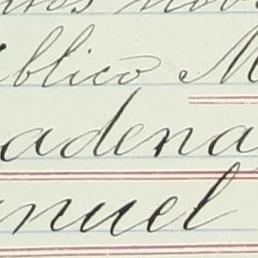 blico M
adena
nuel